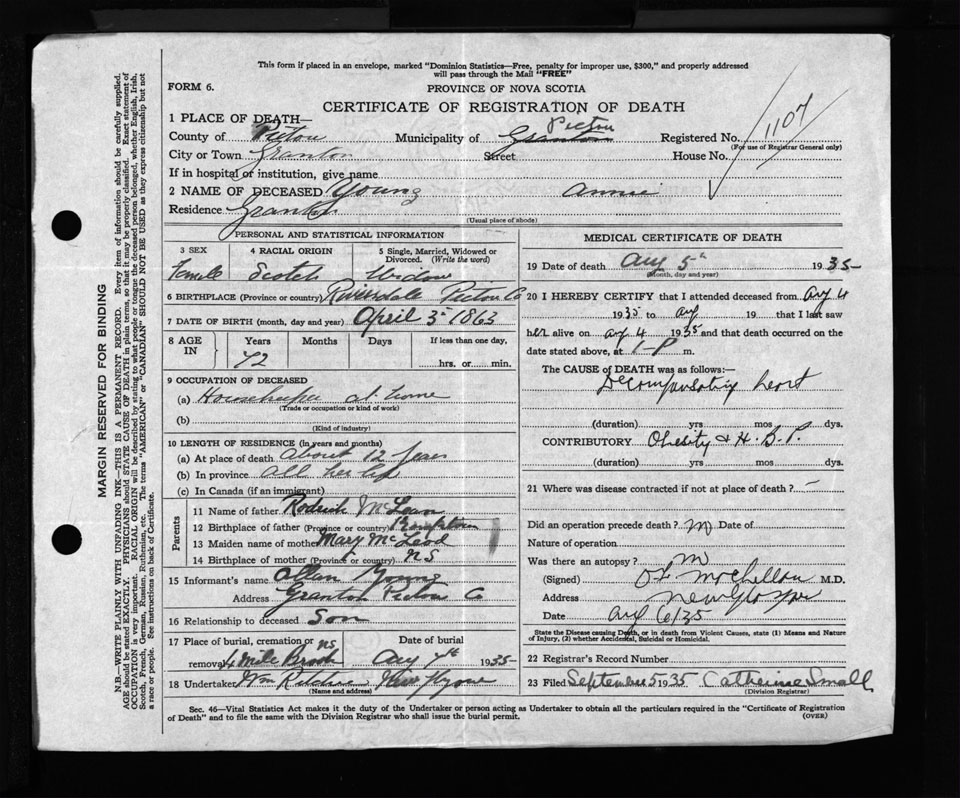 This form if placed in an envelope, marked "Dominion Statistics—Free, penalty for improper use, $300," and properly addressed
will pass through the Mail "FREE"
FORM 6.
PROVINCE OF NOVA SCOTIA
CERTIFICATE OF REGISTRATION OF DEATH
1107
1 PLACE OF DEATH—
County of Pictou Municipality of Granton Pictou Registered No.
(For use of Registrar General only)
City or Town Granton Street House No.
If in hospital or institution, give name
2 NAME OF DECEASED Young Annie
Residence Granton
(Usual place of abode)
PERSONAL AND STATISTICAL INFORMATION
3 SEX 4 RACIAL ORIGIN 5 Single, Married, Widowed or Divorced. (Write the word)
Female Scotch Widow
6 BIRTHPLACE (Province or country) Riversdale Pictou Co
7 DATE OF BIRTH (month, day and year) April 3 1863
8 AGE IN Years Months Days If less than one day,
72 hrs. or min.
9 OCCUPATION OF DECEASED
(a) Housekeeper at home
(Trade or occupation or kind of work)
(b)
(Kind of industry)
10 LENGTH OF RESIDENCE (in years and months)
(a) At place of death about 12 years
(b) In province all her life
(c) In Canada (if an immigrant)
Parents
11 Name of father Roderick McLean
12 Birthplace of father (Province or country)
13 Maiden name of mother Mary McLeod
14 Birthplace of mother (Province or country) NS
15 Informant's name Allan Young
Address Granton Pictou Co
16 Relationship to deceased Son
17 Place of burial, cremation or removal 4 Mile Brook NS Date of burial Aug 7th 1935
18 Undertaker Wm Ritchie
(Name and address)
MEDICAL CERTIFICATE OF DEATH
19 Date of death Aug 5th 1935
(Month, day and year)
20 I HEREBY CERTIFY that I attended deceased from Aug 4
1935 to Aug 19 that I last saw
her alive on Aug 4 1935 and that death occurred on
date stated above, at 1-P m.
The CAUSE of DEATH was as follows:—
Decompensating heart
(duration) yrs mos dys.
CONTRIBUTORY Obesity & H.B.P.
(duration) yrs mos dys.
21 Where was disease contracted if not at place of death? —
Did an operation precede death? no Date of
Nature of operation
Was there an autopsy? no
(Signed) M.D.
Address New Glasgow
Date Aug 6/35
State the Disease causing Death, or in death from Violent Causes, state (1) Means and Nature
of Injury, (2) whether Accidental, Suicidal or Homicidal.
22 Registrar's Record Number
23 Filed September 5 1935 Catherine Small
(Division Registrar)
Sec. 46—Vital Statistics Act makes it the duty of the Undertaker or person acting as Undertaker to obtain all the particulars required in the "Certificate of Registration
of Death" and to file the same with the Division Registrar who shall issue the burial permit. (OVER)
MARGIN RESERVED FOR BINDING
N.B.—WRITE PLAINLY WITH UNFADING INK—THIS IS A PERMANENT RECORD. Every item of information should be carefully supplied.
AGE should be stated EXACTLY. PHYSICIANS should STATE CAUSE OF DEATH in plain terms, so that it may be properly classified. Exact statement of
OCCUPATION is very important. RACIAL ORIGIN will be described by stating to what people or tongue the deceased person belonged, whether English, Irish,
Scotch, French, German, Russian, Ruthenian, etc. The terms "AMERICAN" or "CANADIAN" SHOULD NOT BE USED as they express citizenship but not
a race or people. See instructions on back of Certificate.